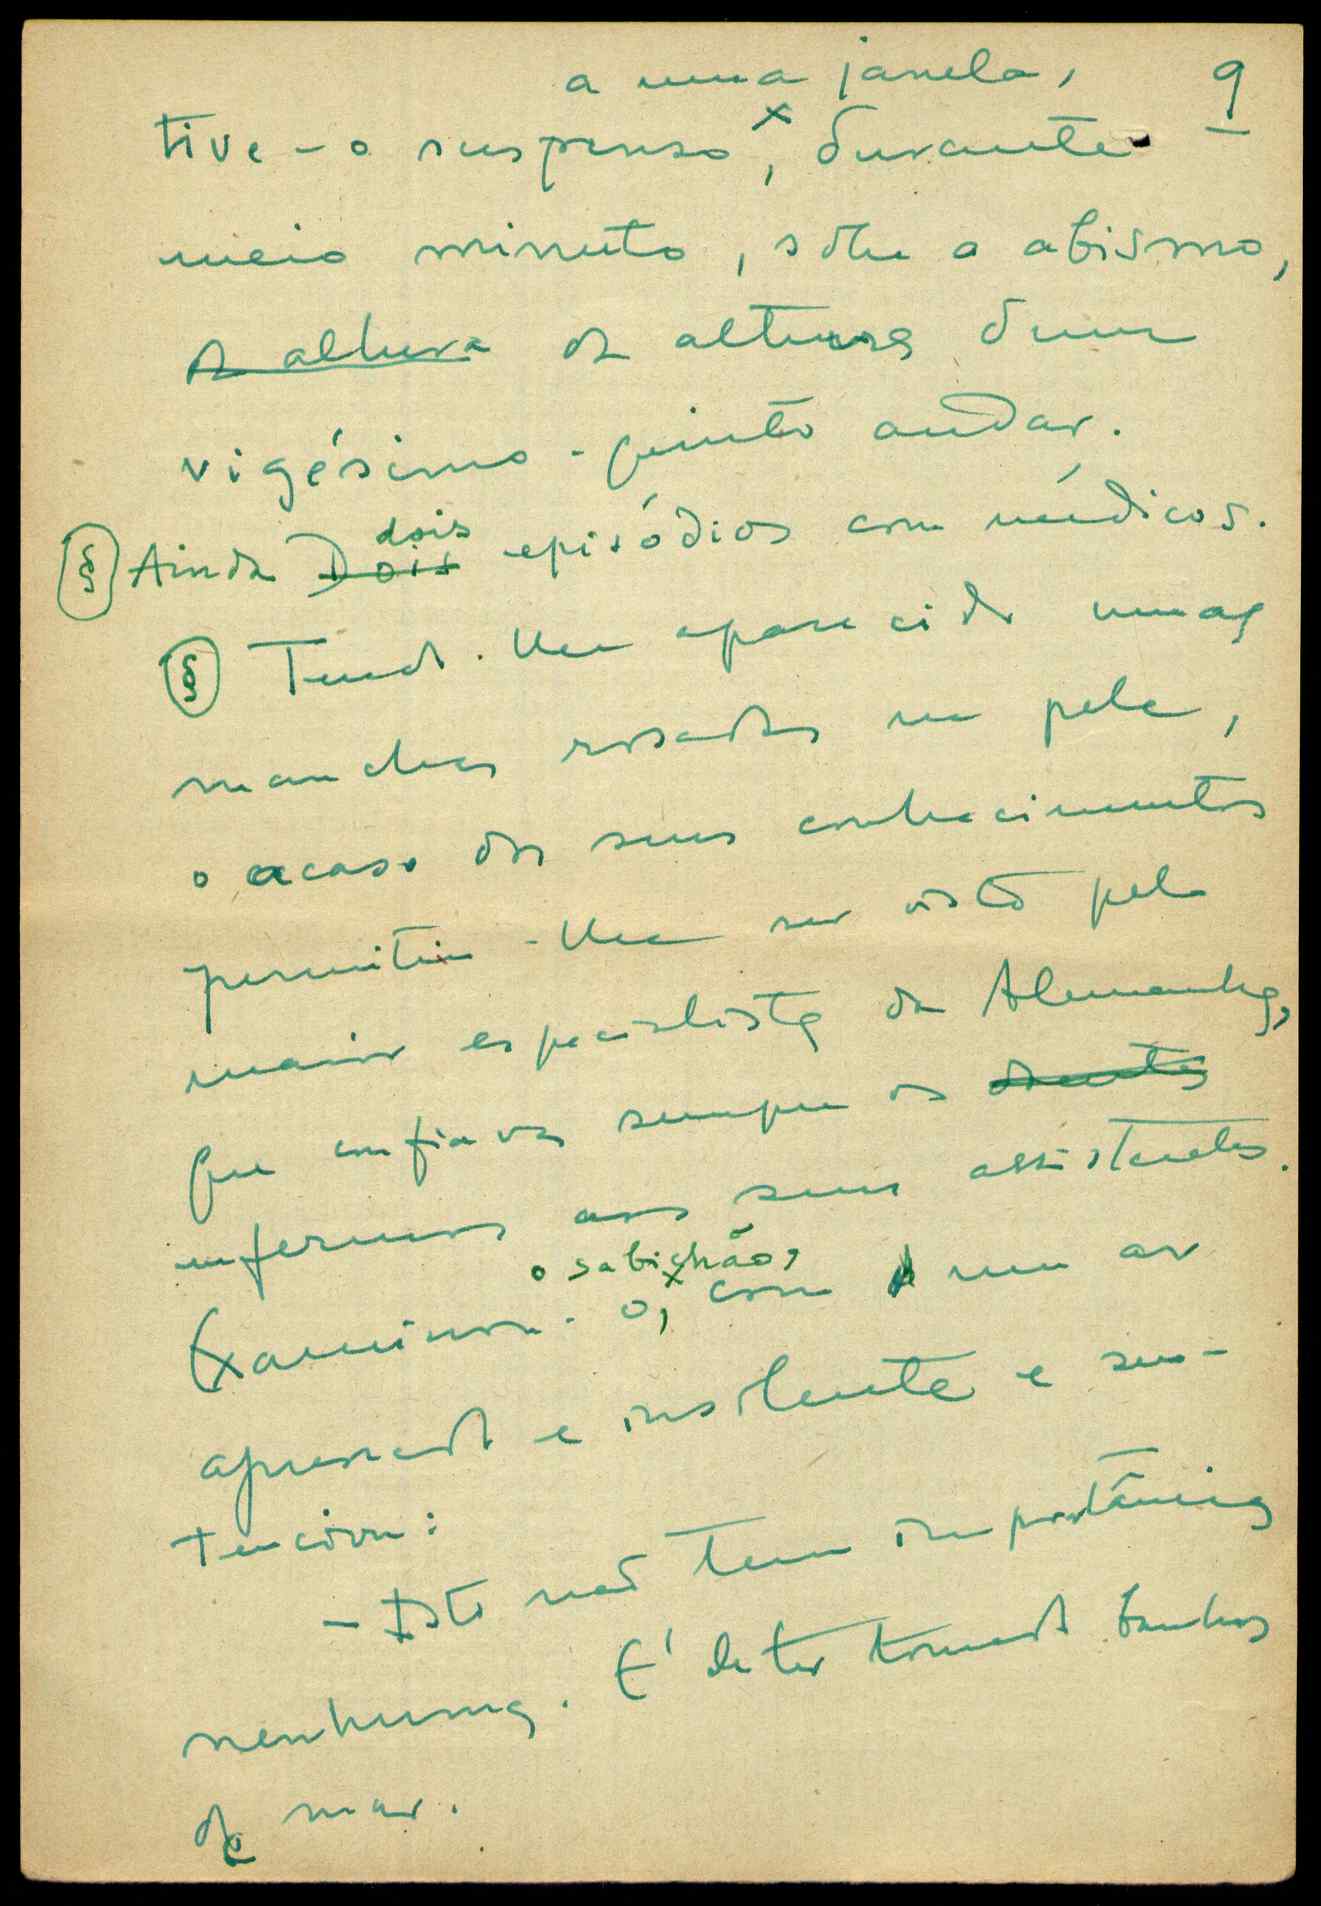 a uma janela,
9
tive-o suspenso, durante
meio minuto, sôbre o abismo,
da altura da altura dum
vigésimo-quinto andar.
§ Ainda Dois dois episódios com médicos.
§ Tendo-lhe aparecido umas
manchas rosadas na pele,
o acaso dos seus conhecimentos
permitiu-lhe ser visto pelo
maior especialista da Alemanha,
que confiava sempre os doentes
enfermos aos seus assistentes.
o sabichão,
Examinou-o, com um ar
apressado e insolente e sen-
tenciou:
- Isto não tem importância
nenhuma. É de ter tomado banhos
de mar.